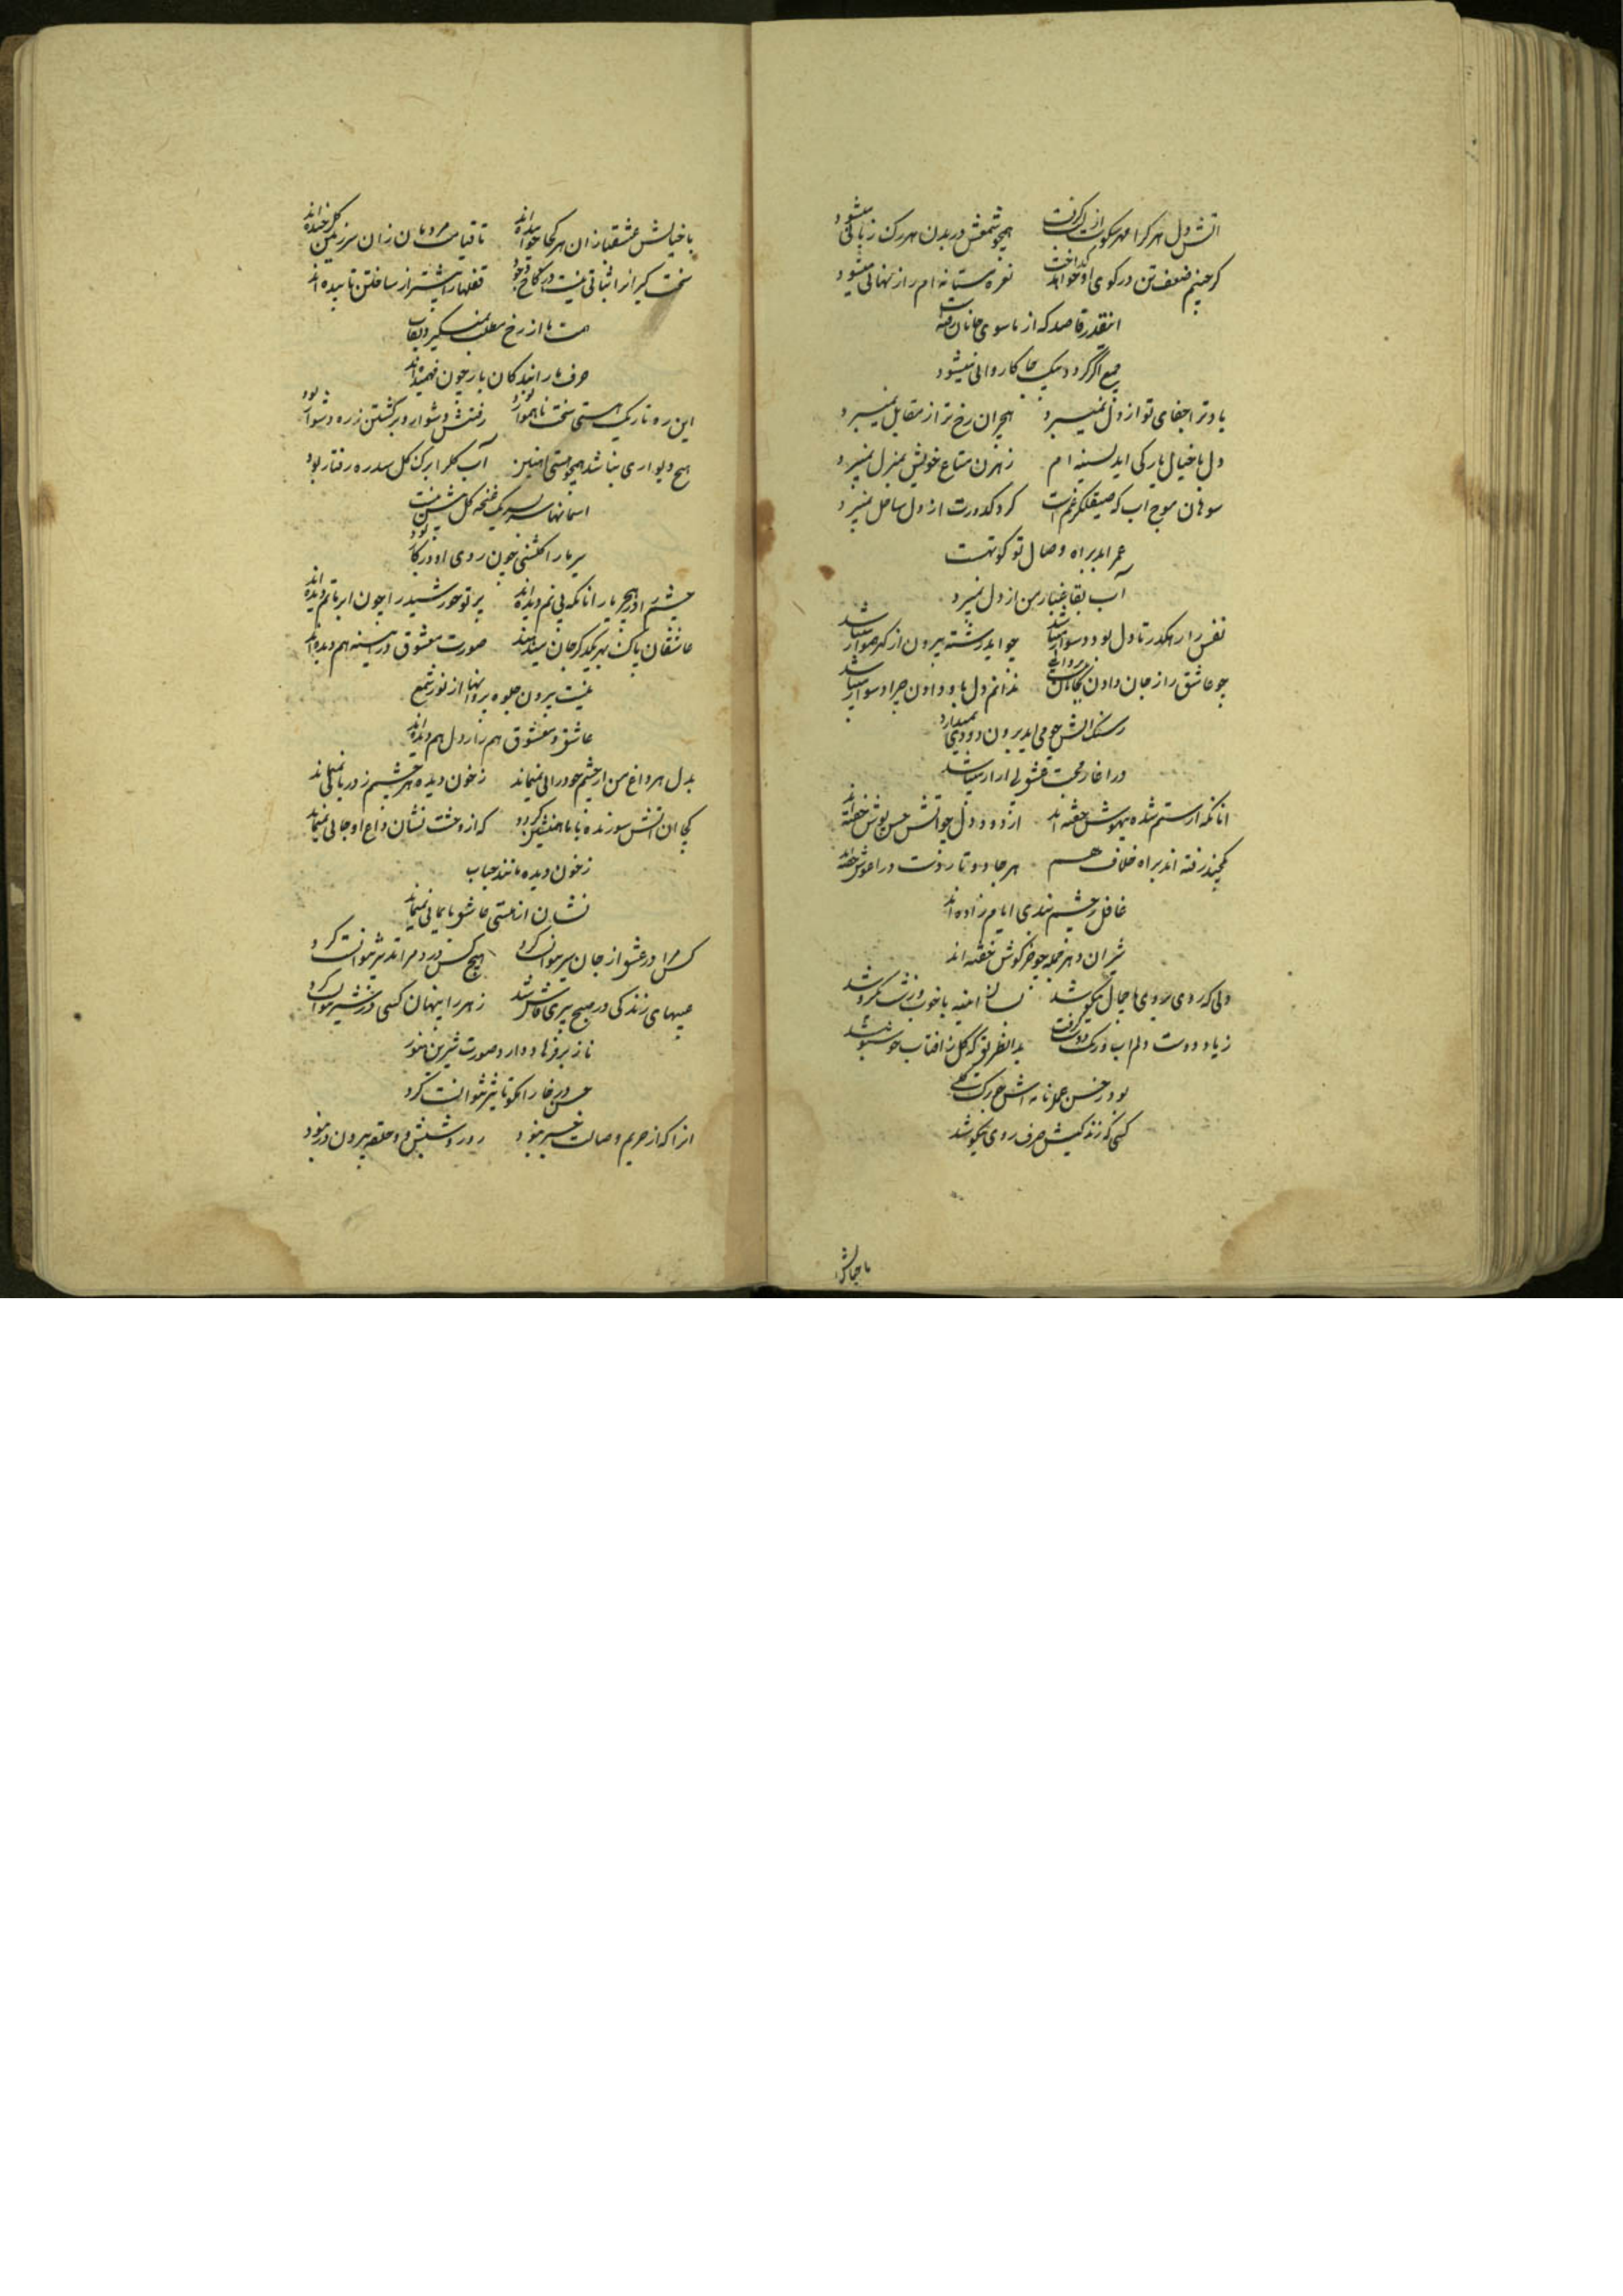 آتش دل هر کرا مهر سکوت از لب گرفت همچو شمعش در بدن هر رک زبانی میشود
کر چنینم ضعف تن در کوی او خواهد کداخت نعره مستانه ام راز نهانی میشود
اینقدر قاصد که از ما سوی جانان رفته است
جمع اکر کردد بیک جا کاروانی میشود
یاد ترا جفای تو از دل نمیبرد هجران رخ ترا از مقابل نمیبرد
دل با خیال یار کی اید بسینه ام رهزن متاع خویش بمنزل نمیبرد
سوهان موج اب که صیقلکر غم است کرد کدورت از دل ساحل نمیبرد
عمر ابد براه وصال تو کوتهست
آب بقا غبار من از دل نمیبرد
نفس را رهکذر تا دل بود دشوار میباشد چو اید رشته بیرون از کهر هموار میباشد
چو عاشق راز جان دادن ندانم دل باو دادن چرا دشوار میباشد
ز سنک اتش چو می اید برون دودی نمیدارد
در اغاز محبت عشق بی ازار میباشد
انانکه از ستم شده بیهوش خفته اند از دود دل چو اتش خس پوش خفته اند
یکچند رفته اند براه خلاف هم هر جا دو تا رفت در اغوش خفته اند
غافل ز چشم بندی ایام زاده اند
شیران دهر جمله چو خرکوش خفته اند
دلی که روی بروی با جمال نیکو شد بسان اینه با خوب و زشت یکرو شد
ز یاد دوست دلم اب و رنک دوست گرفت بدانطریق که کل ز افتاب خوشبو شد
بود ز حسن عمل نامه اش چو برک کلی
کسی که زندکیش صرف روی نیکو شد
با خیالش
با خیالش عشقبازان هر کجا خوابیده اند تا قیامت مردمان زان سرزمین کل چیده اند
سخت کیرانرا ثباتی نیست در کاخ وجود قفلها را بیشتر از ساختن تابیده اند
مت ما از رخ مطلب نمیکیرد نقاب
حرف ما را بندکان یار چون فهمیده اند
این ره تاریک هستی سخت ناهموار بود رفتنش دشوار و برکشتن ز ره دشوار بود
هیچ دیواری نباشد همچو مستی اهنین آب کلک را برک کل سد ره رفتار بود
اسمانها سر بسر یک غنچه کل بیش نیست
سیر ما را کلشنی چون روی او در کار بود
چشم را در هجر یار انانکه بی نم دیده اند پرتو خورشید را چون ابر ماتم دیده اند
عاشقان پاک بهر یکدیکر جان میدهند صورت معشوق در ایینه هم دیده اند
نیست بیرون جلوه پروانها از نور شمع
عاشق و معشوق هم را در دل هم دیده اند
بدل هر داغ من از چشم خود رائی نمیماند ز خون دیده هر چشمم ز دریائی نمیماند
کجا ان اتش سوزنده با ما همنشین کردد که از وحشت نشان داغ او جائی نمیماند
ز خون دیده مانند حباب
نشان از هستی عاشق بایمائی نمیماند
کس مرا در عشق از جان سیر نتوانست کرد هیچ کس درد مرا تدبیر نتوانست کرد
عیبهای زندکی در صبح پیری فاش شد زهر را پنهان کسی در شیر نتوانست کرد
ناز بر فرهاد دارد صورت شیرین هنوز
عشق در خارا نکو تاثیر نتوانست کرد
انرا که از حریم وصالت خبر نبود روز و شبش چو حلقه بیرون در نبود